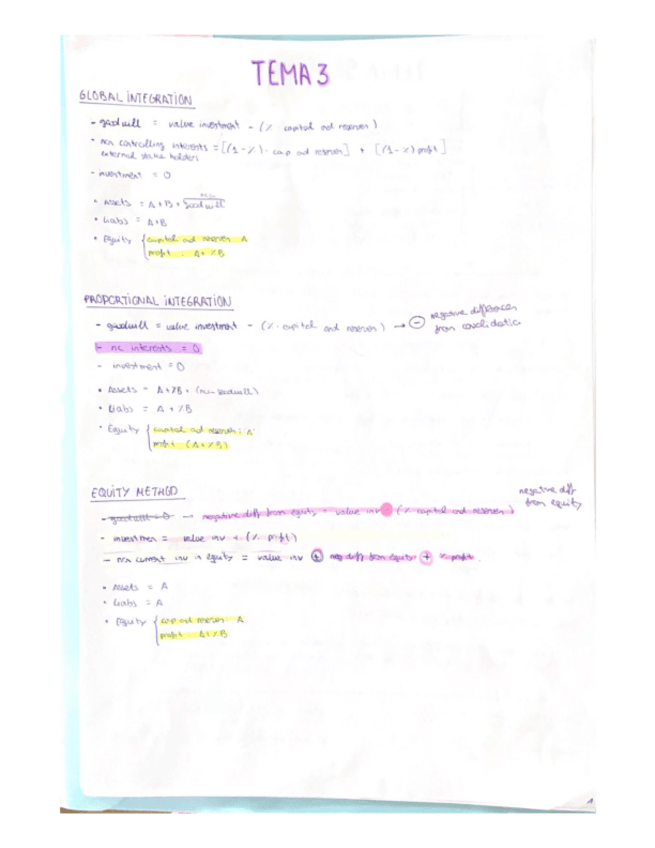 TEMA 3
GLOBAL INTEGRATION
- goodwill = value investment - (% capital and reserves)
- non controlling interests = [(1-%) · cap and reserves] + [(1-%) profit]
external stake holders
- investment = 0
• Assets = A + B + goodwill
• Liabs = A+B
• Equity { capital and reserves A
profit . A + %B
PROPORTIONAL INTEGRATION
- goodwill = value investment - (% capital and reserves) → ⊖ negative differences
from consolidation
- nc interests = 0
- investment = 0
• Assets = A + %B + (goodwill)
• Liabs = A + %B
• Equity { capital and reserves: A
profit (A + %B)
EQUITY METHOD
negative diff
from equity
- goodwill = 0 → negative diff from equity = value inv - (% capital and reserves)
- investment = value inv + (% profit)
- non current inv in equity = value inv + neg diff from equity + % profit.
• Assets = A
• Liabs = A
• Equity { cap and reserves A
profit A + %B